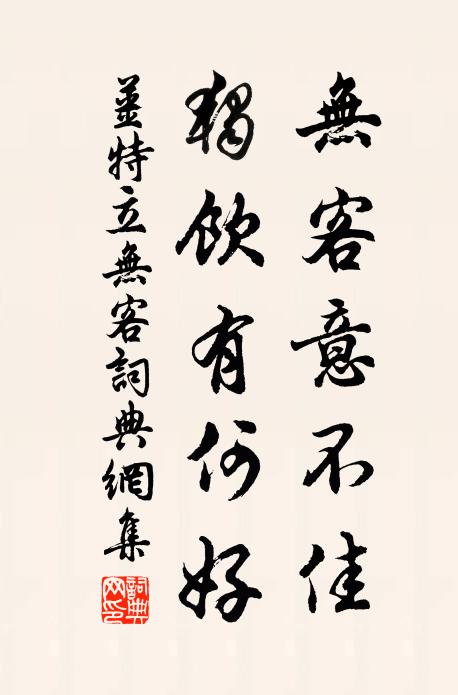 無客意不佳
獨飲有何好
姜特立無客詞典網集
詞典网印